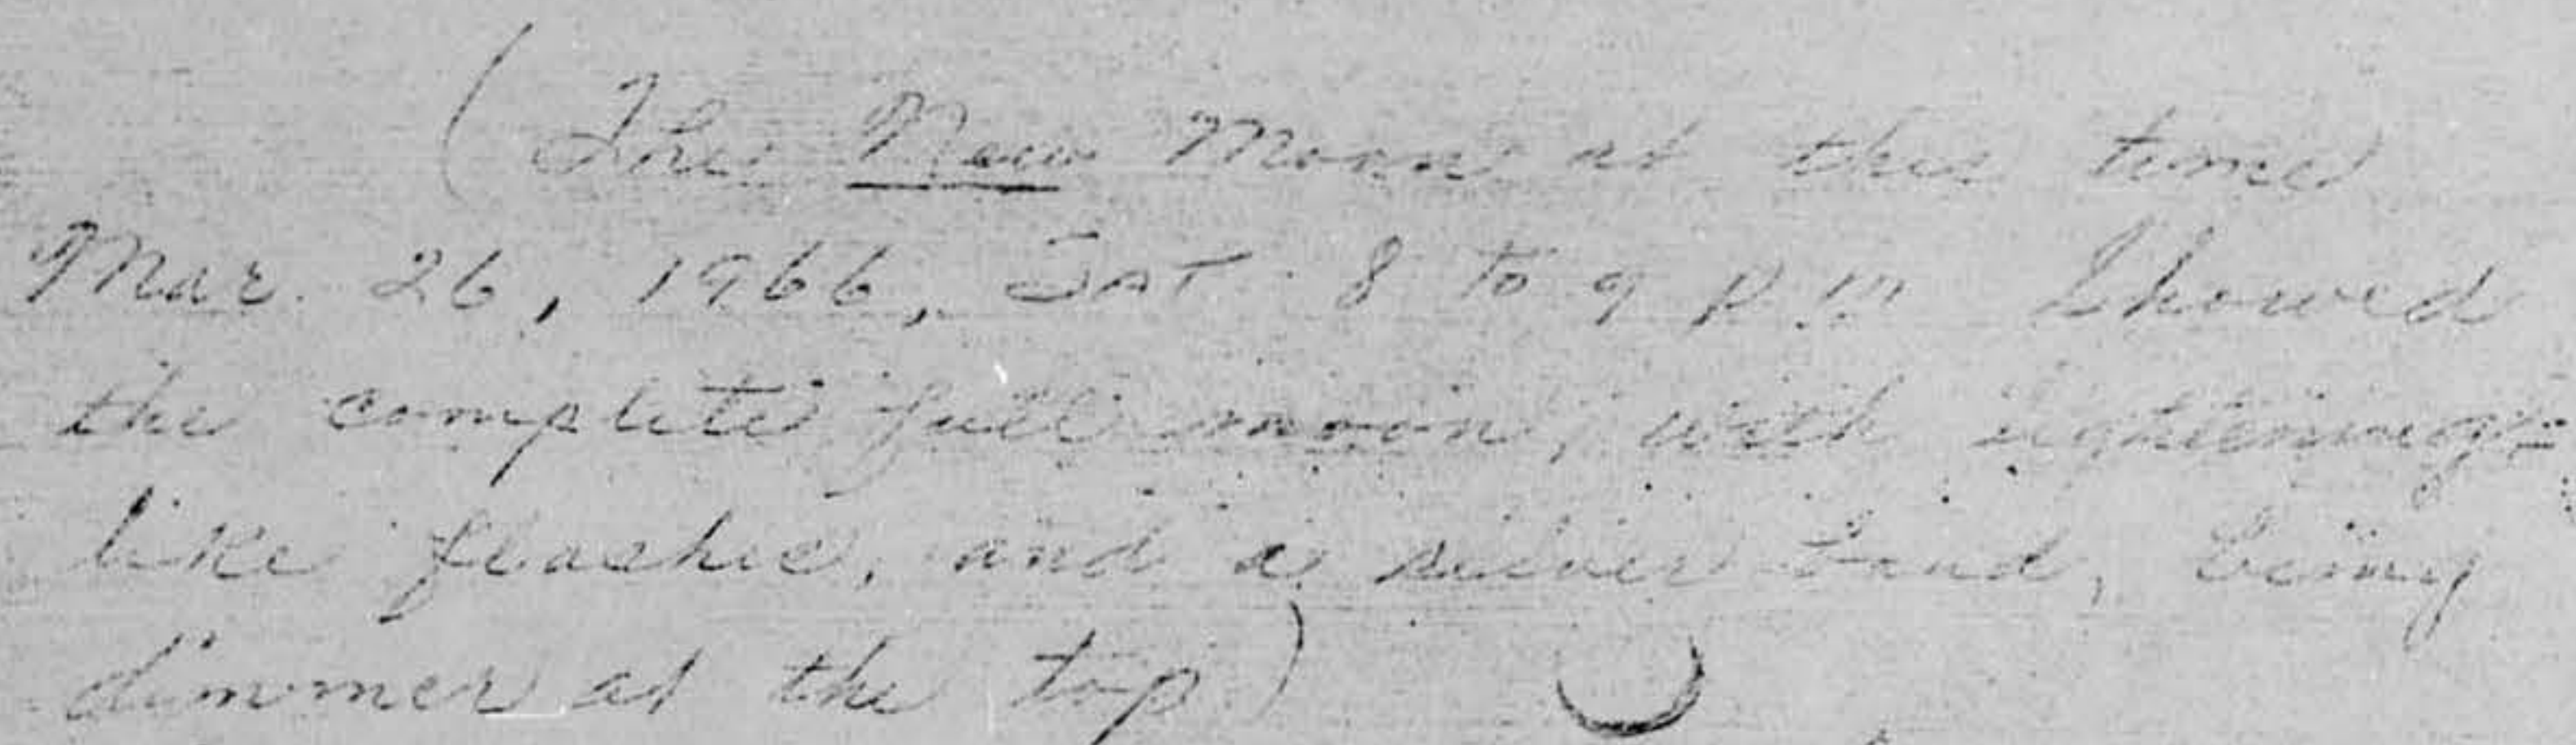 (The New Moon at this time
Mar. 26, 1966, SAT. 8 to 9 P.M Showed
the complete full moon, with lightening-
like flashes, and a silver band, being
dimmer at the top)